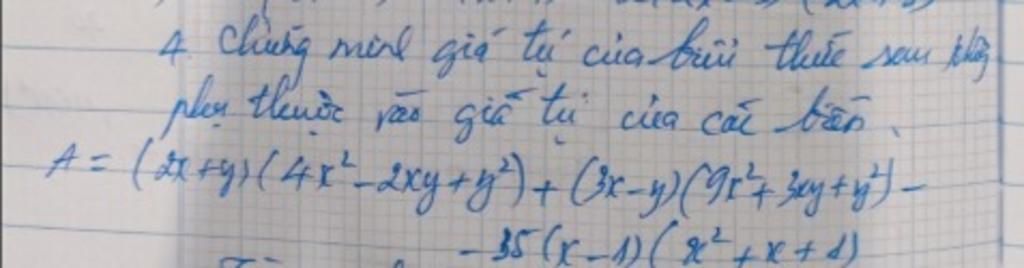 4. Chứng minh giá trị của biểu thức sau không
phụ thuộc vào giá trị của các biến.
A = (2x+y)(4x² - 2xy + y²) + (3x-y)(9x² + 3xy + y²) -
- 35(x-1)(x² + x + 1)